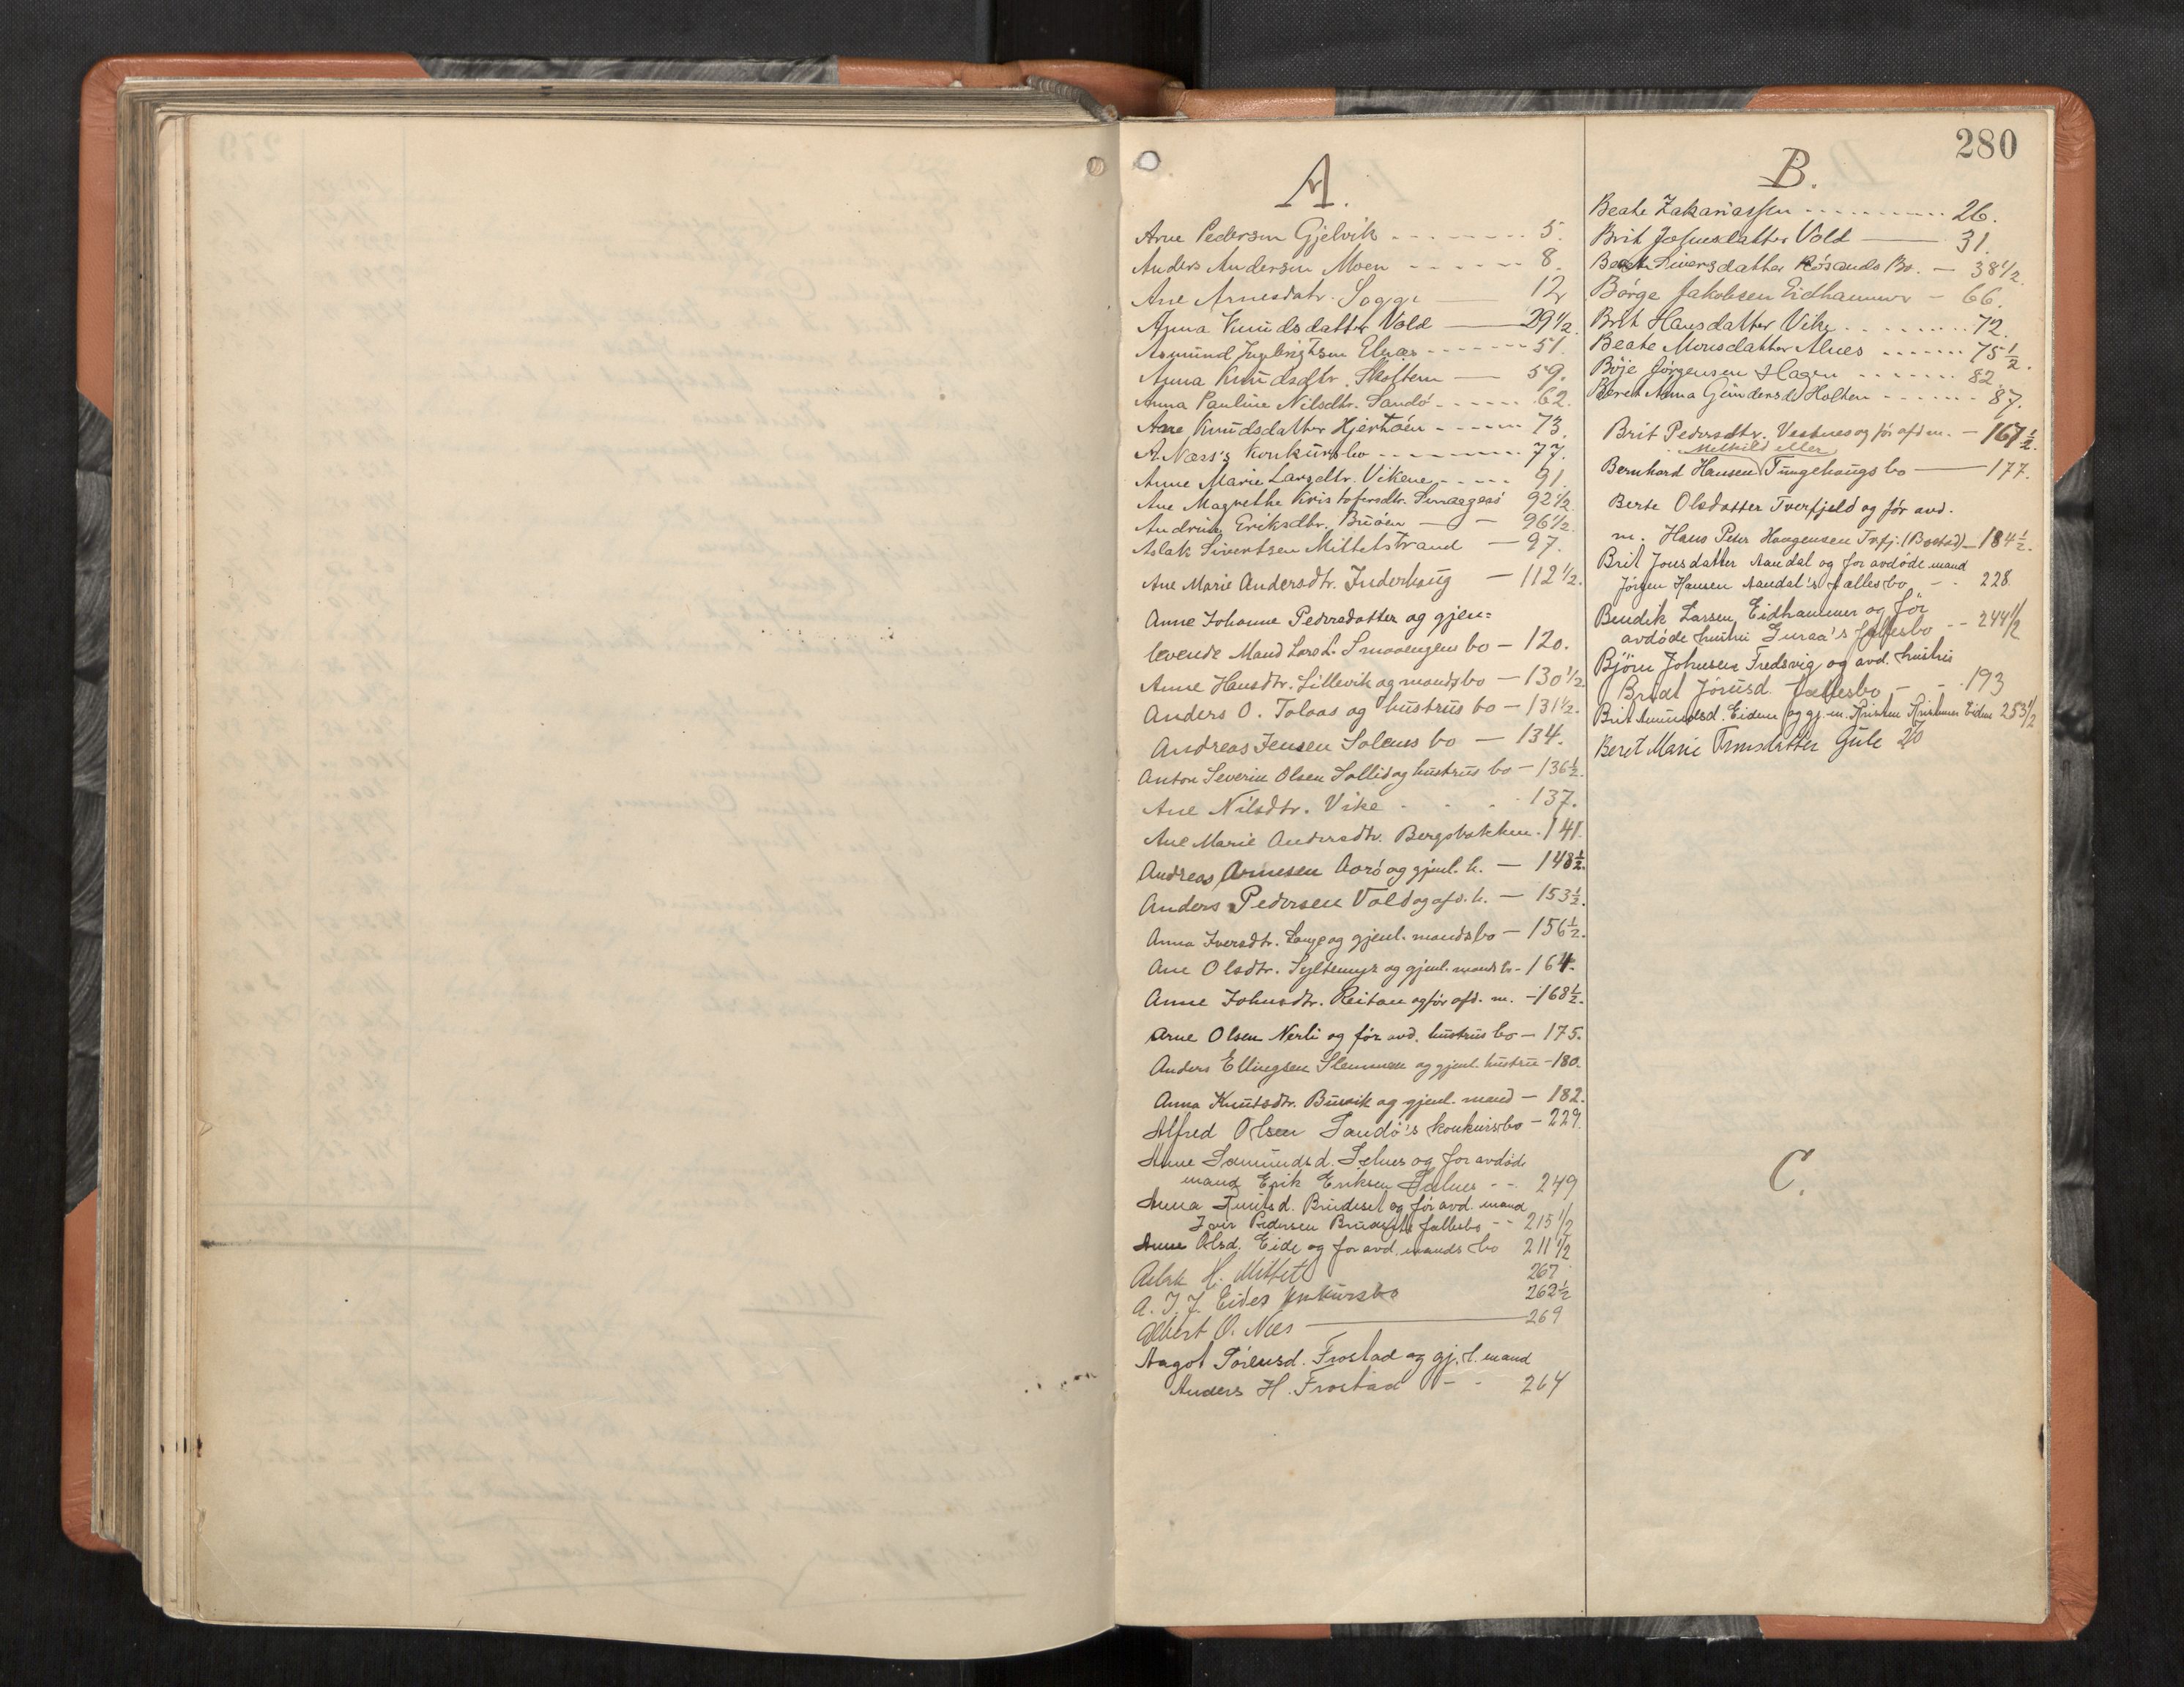 280
A.
Arne Pedersen Gjelvik - - - - - - - 5.
Anders Andersen Moen - - - - - - 8.
Ane Arnesdatr. Sogge — 12
Anna Knudsdatter Vold — 29 1/2.
Asmund Ingebrigtsen Elnæs - - - - - - 51.
Anna Knudsdtr. Skottem — 59.
Anna Pauline Nilsdtr. Sandö - - - - - - 62.
Ane Knudsdatter Hjertöen - - - - - - 73.
A. Næss's Konkursbo - - - - - - - 77.
Anne Marie Larsdtr. Vikene - - - - - 91.
Ane Magrethe Kristofersdtr. 92 1/2
Andrine Eriksdtr. Buöen — - 96 1/2.
Aslak Sivertsen Mittetstrand — 97.
Ane Marie Andersdtr. Inderhaug — 112 1/2.
Anne Johanne Pedersdatter og gjen=
levende Mand Lars L. Smaaengens bo — 120.
Anne Hansdtr. Lillevik og mands bo — 130 1/2
Anders O. Tolaas og hustrus bo — 131 1/2.
Andreas Jensen Solens bo — 134.
Anton Severin Olsen Sollid og hustrus bo — 136 1/2.
Ane Nilsdtr. Vike - - - 137.
Ane Marie Andersdtr. Bergsbakken. 141.
Andreas Arnesen Aarö og gjenl. h. — 148 1/2.
Anders Pedersen Vold og afd. h. — 153 1/2.
Anna Iversdtr. Lange og gjenl. mands bo — 156 1/2.
Ane Olsdtr. Syltemyr og gjenl. mands bo - 164.
Anne Johnsdtr. Reitan og för afd. m. - 168 1/2.
Arne Olsen Nerli og för avd. hustrus bo — 175.
Anders Ellingsen Slemmen og gjenl. hustru - 180.
Anna Knutsdtr. Buvik og gjenl. mand — 182.
Alfred Olsen Sandö's konkursbo — 229.
Anne Samundsd. Selnes og for avdöde
mand Erik Eriksen Selnes - - 249
Anna Knutsd. Brudeset og för avd. mand
Iver Pedersen Brudesets fællesbo - - 215 1/2
Anne Olsd. Eide og for avd. mands bo 211 1/2
Aslak H. Mittet 267
A. J. J. Eides konkursbo 262 1/2
Albert O. Næs — 269
Aagot Sörensd. Frostad og gj. l. mand
Anders H. Frostad - - 264
B.
Beate Zakariassen - - - - - - - - 26.
Brit Johnsdatter Vold — 31.
Beret Siversdatter Rösands Bo. — 38 1/2.
Börge Jakobsen Eidhammer — 66.
Brit Hansdatter Vike - - - - - - - - 72.
Beate Monsdatter Alnes - - - - - - 75 1/2.
Böje Jörgensen Hagen - - - - - - - 82.
Beret Anna Gundersd. Holten - - - - - - 87.
Brit Pedersdtr. Vestnes og för afd m. — 167 1/2.
Methild eller
Bernhard Hansen Tungehaugs bo — 177.
Berte Olsdatter Tverfjeld og för avd.
m. Hans Peter Haagensen Tvfj. (Bostad) — 184 1/2.
Brit Jonsdatter Aandal og for avdöde mand
Jörgen Hansen Aandal's fællesbo - - 228
Bendik Larsen Eidhammer og för
avdöde hustru Guraa's fællesbo - - 244 1/2
Björn Johnsen Fredsvig og avd. hustru
Jörusd. fællesbo - - 193
Brit Amundsd. Eidem og gj. m. Kristen Kristensen Eidem 253 1/2
Beret Marie Gule
C.